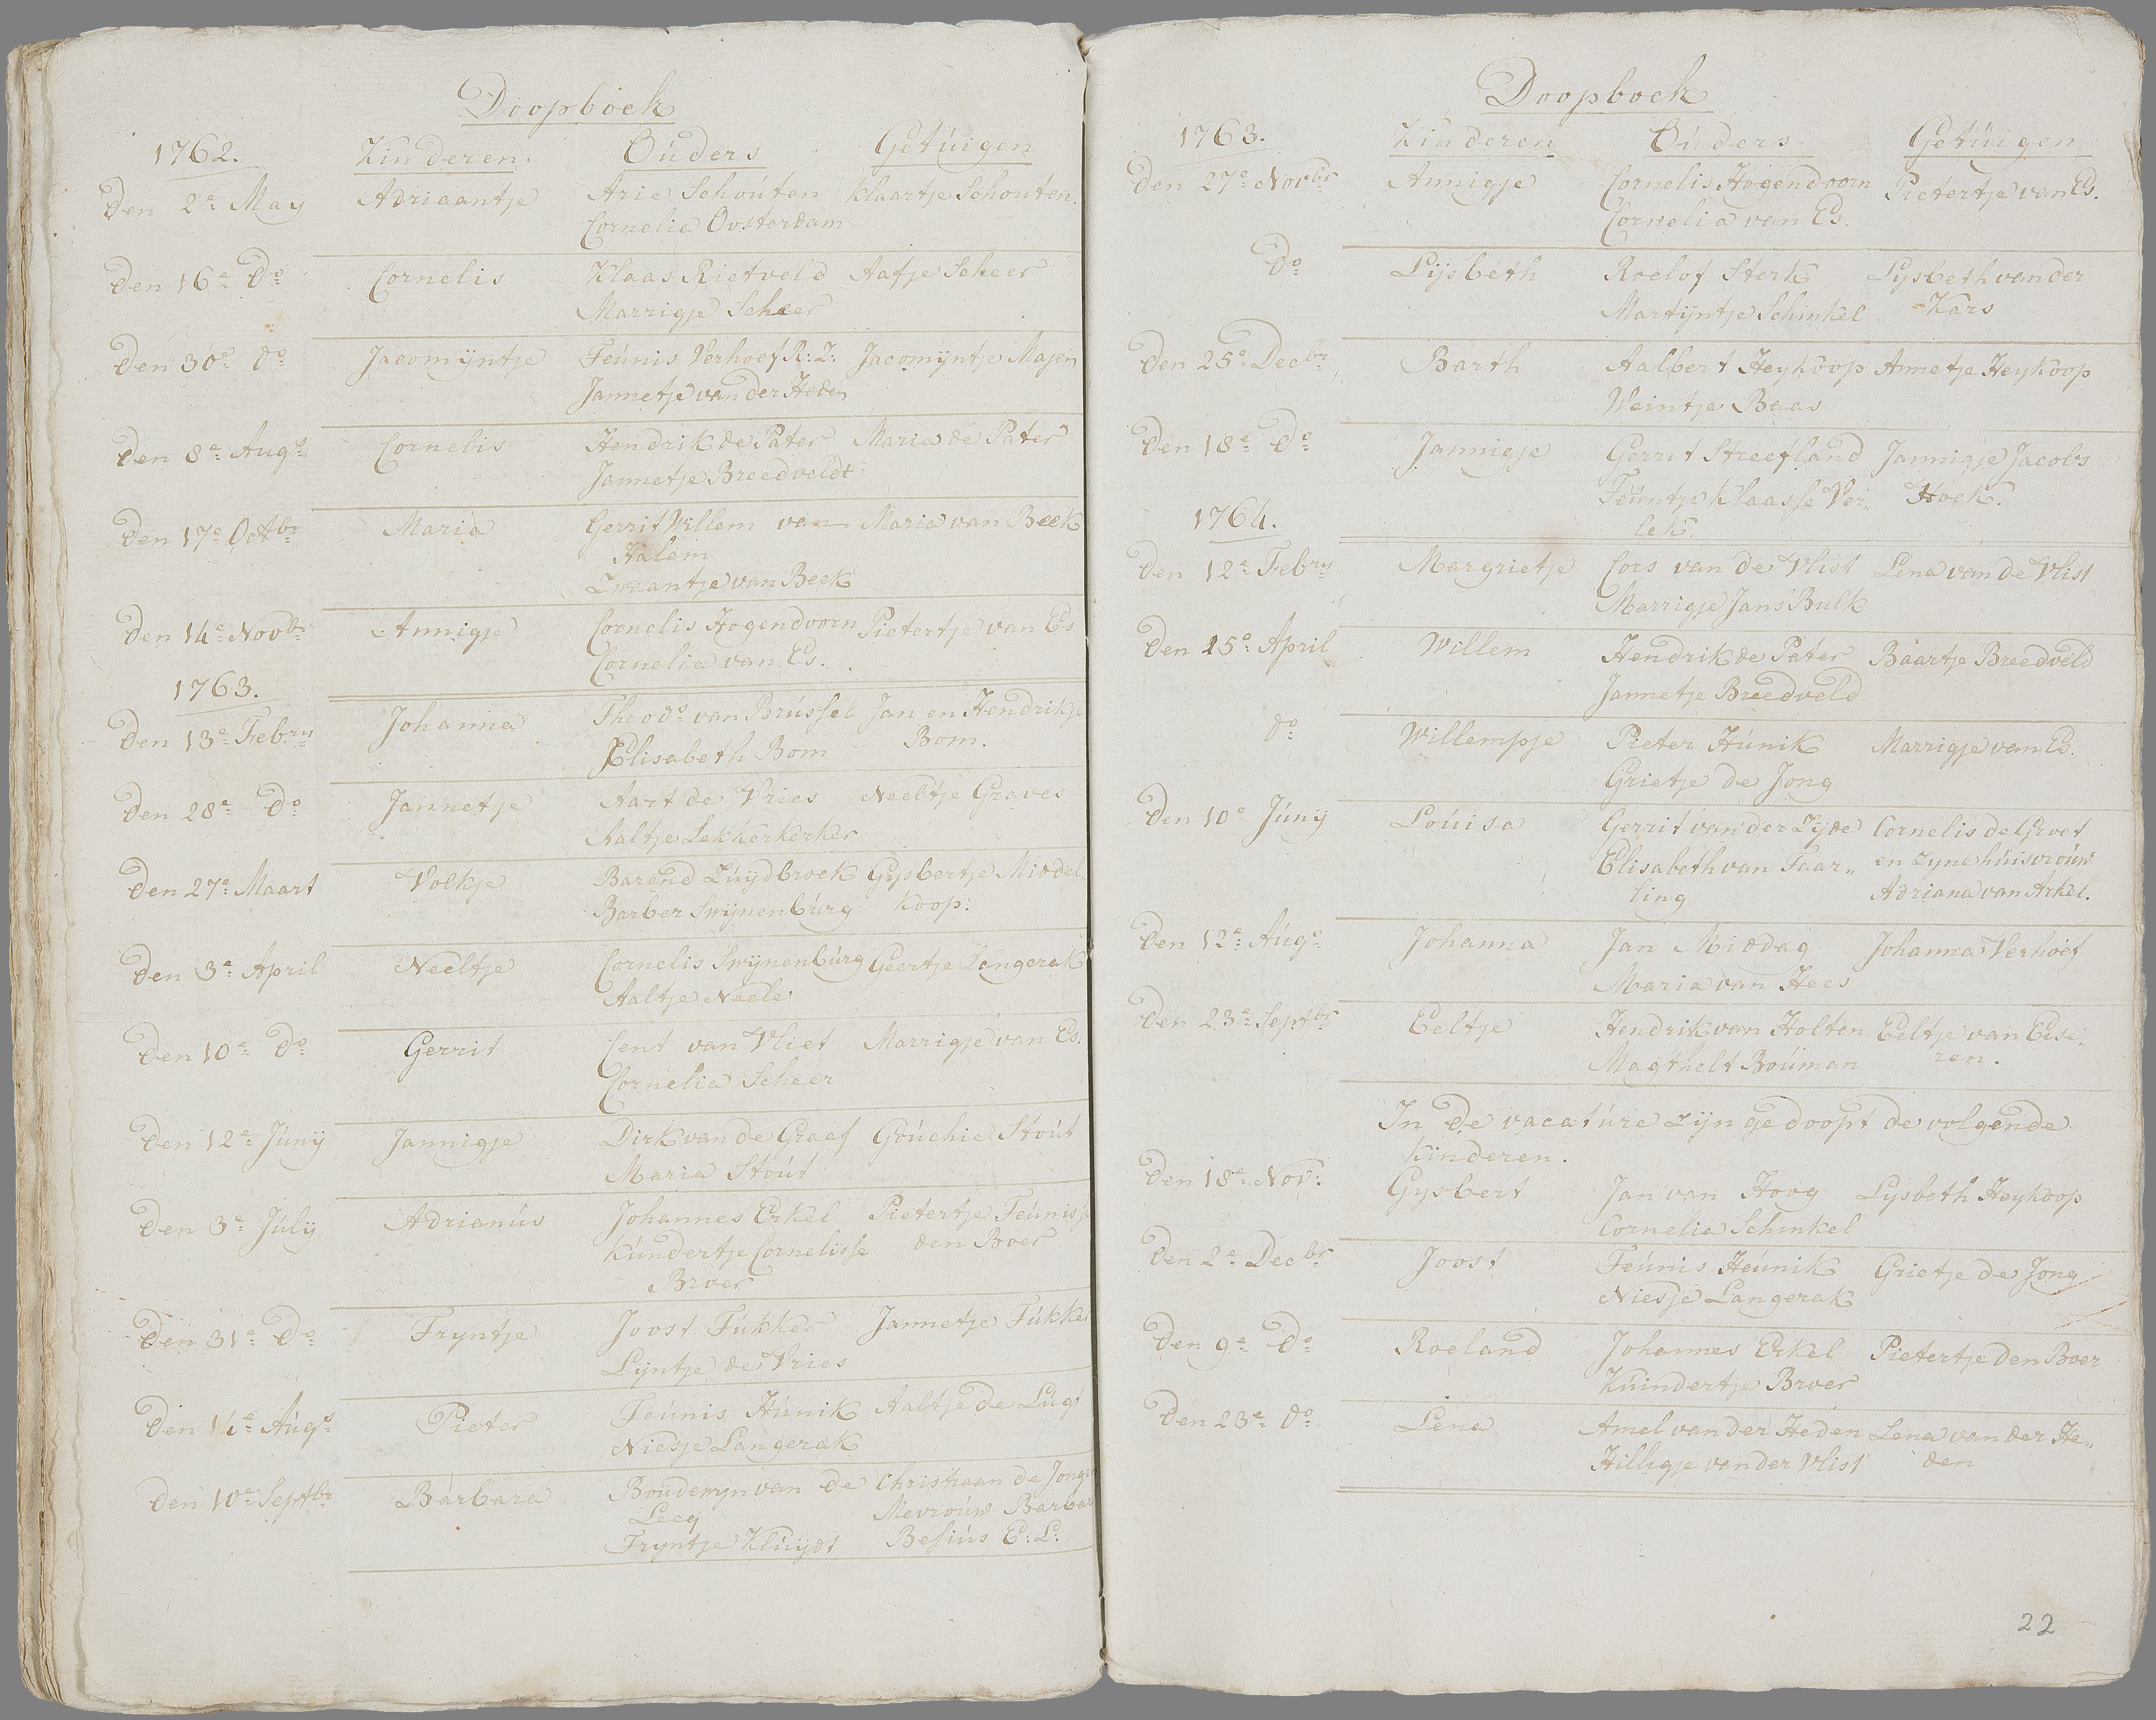 Doopboek
1762. Kinderen. Ouders Getuigen
Den 2e May Adriaantje Arie Schouten Klaartje Schouten.
Cornelia Oosterdam
Den 16e Do Cornelis Klaas Rietveld Aafje Scheer
Marrigje Scheer
Den 30e do Jacomijntje Teunis Verhoef R:Z: Jacomijntje Majen
Jannetje van der Heden
Den 8e Augs Cornelis Hendrik de Pater Maria de Pater
Jannetje Breedveldt
Den 17e Octbr Maria Gerrit Willem van Maria van Beek
Halem
Zwaantje van Beek
Den 14e Novbr Annigje Cornelis Hogendoorn Pietertje van Es
Cornelia van Es.
1763.
Den 13e Febry Johanna Theodo van Brussel Jan en Hendrikje
Elisabeth Bom Bom.
Den 28e Do Jannetje Aart de Vries Neeltje Graves
Aaltje Lekkerkerker
Den 27e Maart Volkje Barend Zuydbroek Gysbertje Middel
Barber Swijnenburg Koop:
Den 3e April Neeltje Cornelis Swijnenburg Geertje Langerak
Aaltje Neele
Den 10e Do Gerrit Cent van Vliet Marrigje van Es.
Cornelia Scheer
Den 12e Juny Jannigje Dirk van de Graef Gouchie Stout
Maria Stout
Den 3e July Adrianus Johannes Erkel Pietertje Teunisse
Kundertje Cornelisse den Boer
Broer
Den 31e Do Tryntje Joost Tukker Jannetje Tukker
Lijntje de Vries
Den 14e Augs Pieter Teunis Hunik Aaltje de Lugt
Niesje Langerak
Den 10e Septbr Barbara Boudewyn van de Christiaan de Jonge
Lecq Mevrouw Barbar
Tryntje Kluijdt Besius E:L:
Doopboek
1763. Kinderen Ouders Getuigen
Den 27e Novbr Annigje Cornelis Hogendoorn Pietertje van Es.
Cornelia van Es.
Do Lijsbeth Roelof Sterk Lysbeth van der
Martijntje Schinkel Kars
Den 25e Decbr Barth Aalbert Heykoop Annetje Heykoop
Weintje Baas
Den 18e Do Jannigje Gerrit Streefland Jannigje Jacobs
Teuntje Klaasse Ver„ Hoek.
lek.
1764.
Den 12e Febry Margrietje Cors van de Vlist Lena van de Vlist
Marrigje Jans Bulk
Den 15e April Willem Hendrik de Pater Baartje Breedveld
Jannetje Breedveld
do Willempje Pieter Hunik Marrigje van Es.
Grietje de Jong
Den 10e Juny Louisa Gerrit van der Zyde Cornelis de Groot
Elisabeth van Taar„ en zyne huisvrouw
ling Adriana van Arkel.
Den 12e Augs Johanna Jan Middag Johanna Verhoef
Maria van Hees
Den 23e Septbr Eeltje Hendrik van Holten Eeltje van Eese„
Magthelt Bouman ren.
In de vacature zijn gedoopt de volgende
kinderen.
Den 18e Nov: Gysbert Jan van Hoog Lysbeth Heykoop
Cornelia Schinkel
Den 2e Decbr Joost Teunis Heunik Grietje de Jong
Niesje Langerak
Den 9e Do Roeland Johannes Erkel Pietertje den Boer
Kuindertje Broer
Den 23e do Lena Amel van der Heden Lena van der He„
Hilligje van der Vlist den
22